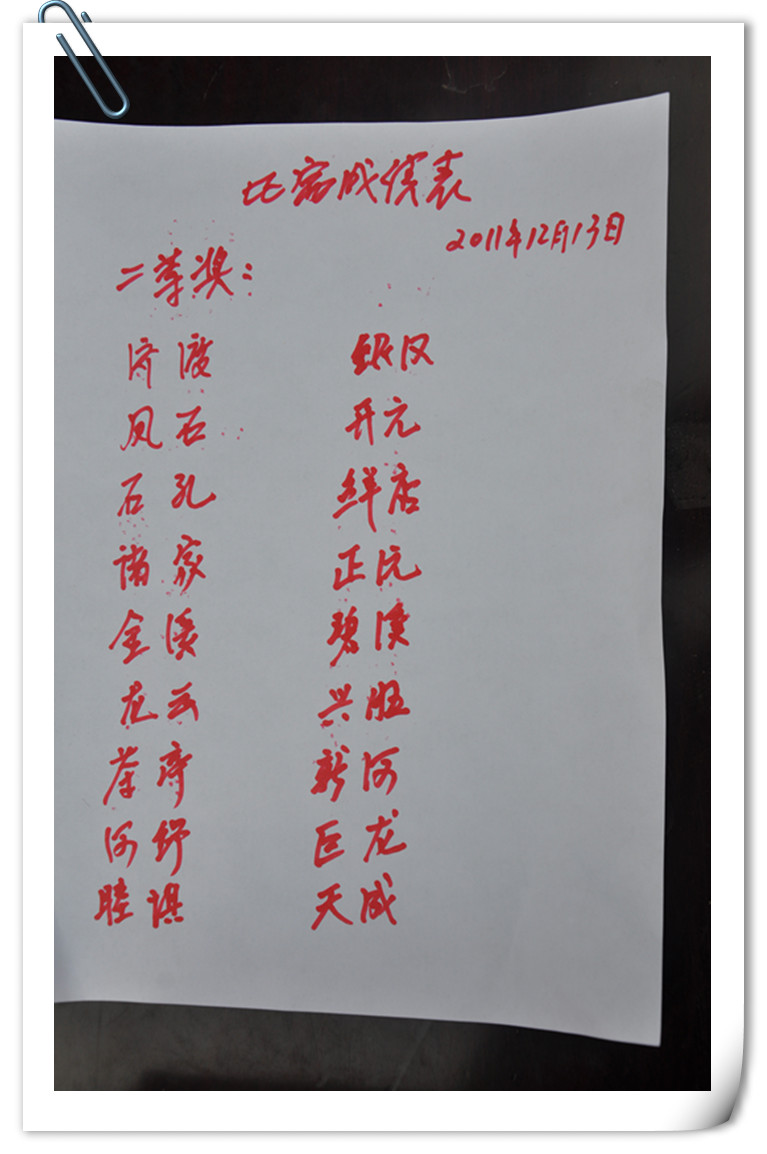 比赛成绩表
2011年12月13日
二等奖：
济渡 银汉
凤石 开元
石孔 鲜店
诸家 正沅
金溪 碧溪
龙云 兴旺
茶亭 新河
河野 巨龙
睦谟 天成